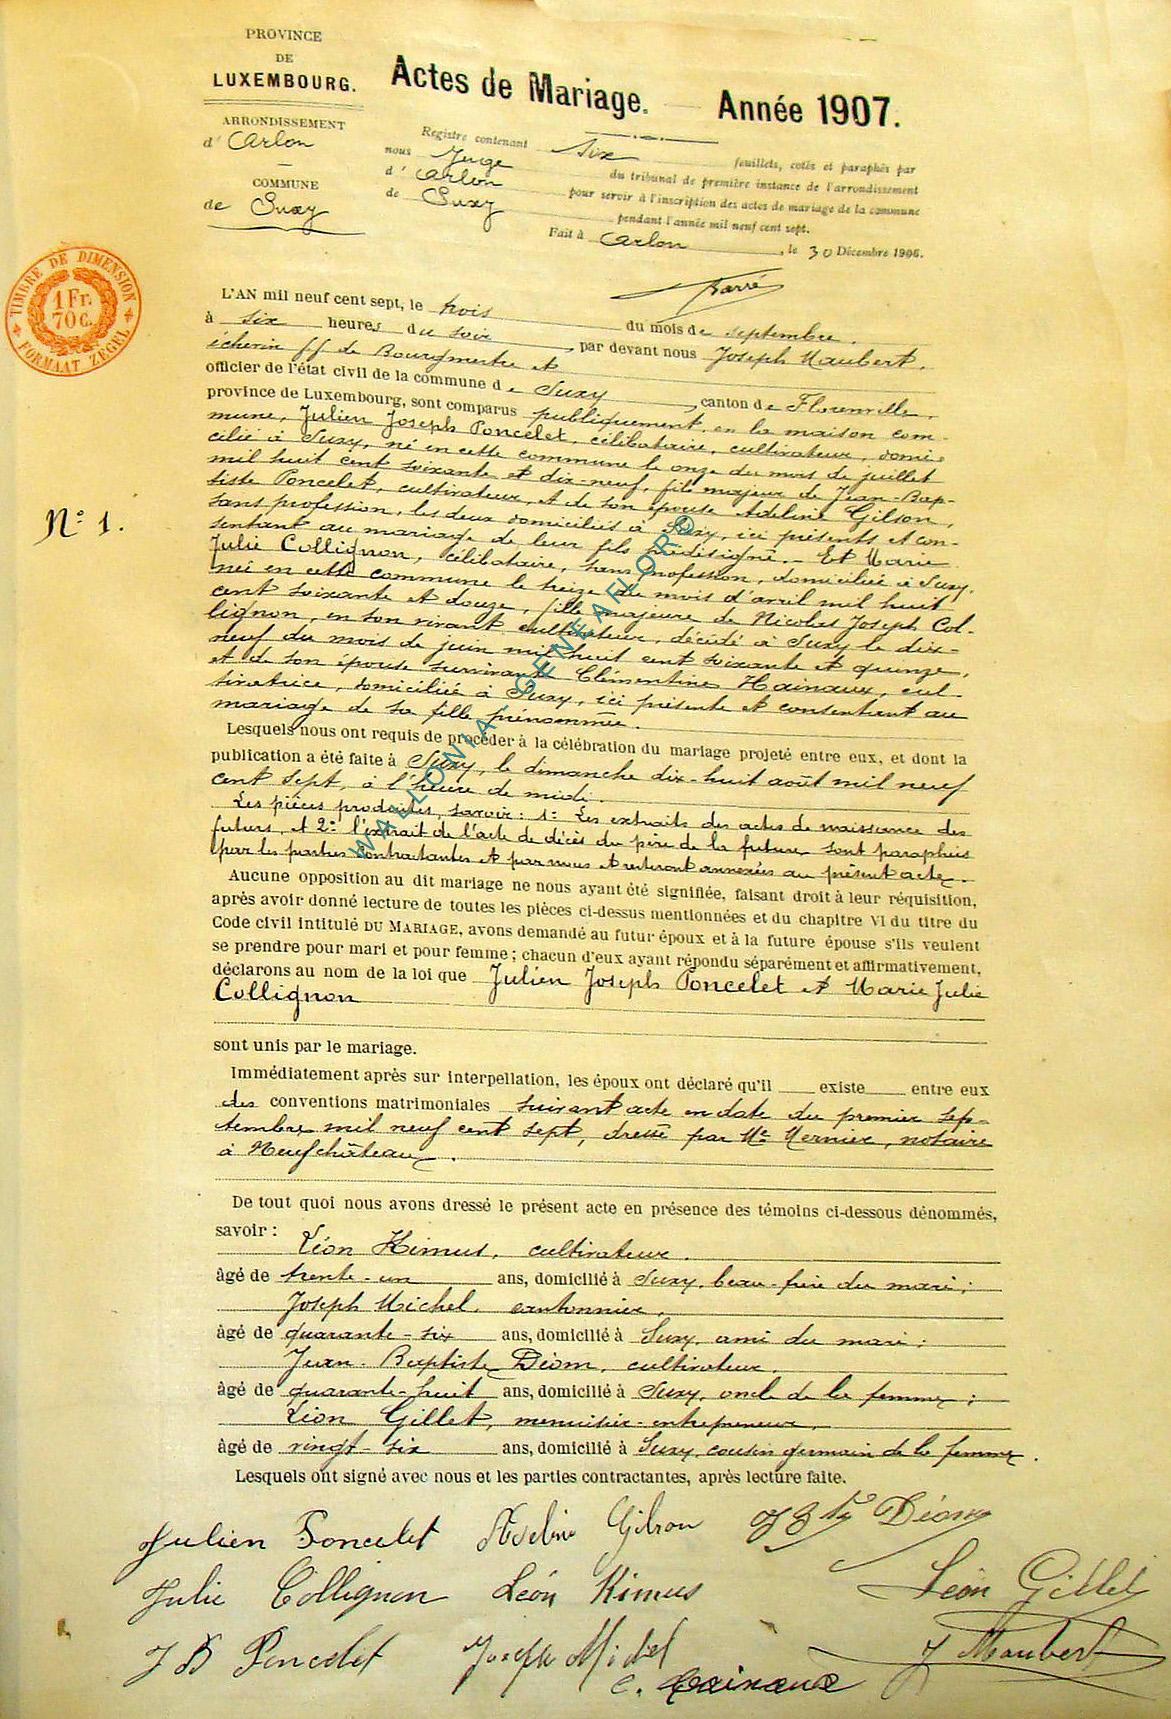 PROVINCE
DE
LUXEMBOURG.
ARRONDISSEMENT
d'Arlon
COMMUNE
de Suxy
Actes de Mariage. — Année 1907.
Registre contenant six feuillets, cotés et paraphés par
nous Juge du tribunal de première instance de l'arrondissement
d'Arlon pour servir à l'inscription des actes de mariage de la commune
de Suxy pendant l'année mil neuf cent sept.
Fait à Arlon, le 30 Décembre 1906.
Barré
TIMBRE DE DIMENSION
1 Fr.
70 c.
FORMAAT ZEGEL
N° 1.
L'AN mil neuf cent sept, le trois du mois de septembre,
à six heures du soir, par devant nous Joseph Maubert,
échevin ff de Bourgmestre et
officier de l'état civil de la commune de Suxy, canton de Florenville,
province de Luxembourg, sont comparus publiquement, en la maison com-
mune, Julien Joseph Poncelet, célibataire, cultivateur, domi-
cilié à Suxy, né en cette commune le onze du mois de juillet
mil huit cent soixante et dix-neuf, fils majeur de Jean-Bap-
tiste Poncelet, cultivateur, et de son épouse Adeline Gilson,
sans profession, les deux domiciliés à Suxy, ici présents et con-
sentant au mariage de leur fils prédésigné. Et Marie
Julie Collignon, célibataire, sans profession, domiciliée à Suxy,
née en cette commune le treize du mois d'avril mil huit
cent soixante et douze, fille majeure de Nicolas Joseph Col-
lignon, en son vivant cultivateur, décédé à Suxy le dix-
neuf du mois de juin mil huit cent soixante et quinze,
et de son épouse survivante Clémentine Hainaux, cul-
tivatrice, domiciliée à Suxy, ici présente et consentant au
mariage de sa fille prénommée.
Lesquels nous ont requis de procéder à la célébration du mariage projeté entre eux, et dont la
publication a été faite à Suxy, le dimanche dix-huit août mil neuf
cent sept, à l'heure de midi.
Les pièces produites, savoir: 1° Les extraits des actes de naissance des
futurs, et 2° l'extrait de l'acte de décès du père de la future sont paraphés
par les parties contractantes et par nous et resteront annexées au présent acte.
Aucune opposition au dit mariage ne nous ayant été signifiée, faisant droit à leur réquisition,
après avoir donné lecture de toutes les pièces ci-dessus mentionnées et du chapitre VI du titre du
Code civil intitulé DU MARIAGE, avons demandé au futur époux et à la future épouse s'ils veulent
se prendre pour mari et pour femme; chacun d'eux ayant répondu séparément et affirmativement,
déclarons au nom de la loi que Julien Joseph Poncelet et Marie Julie
Collignon
sont unis par le mariage.
Immédiatement après sur interpellation, les époux ont déclaré qu'il existe entre eux
des conventions matrimoniales suivant acte en date du premier sep-
tembre mil neuf cent sept, dressé par Me Mernier, notaire
à Neufchâteau.
De tout quoi nous avons dressé le présent acte en présence des témoins ci-dessous dénommés,
savoir: Léon Kimus, cultivateur.
âgé de trente-un ans, domicilié à Suxy, beau-frère du mari;
Joseph Michel, cantonnier,
âgé de quarante-six ans, domicilié à Suxy, ami du mari;
Jean-Baptiste Déom, cultivateur,
âgé de quarante-huit ans, domicilié à Suxy, oncle de la femme;
Léon Gillet, menuisier-entrepreneur,
âgé de vingt-six ans, domicilié à Suxy, cousin germain de la femme.
Lesquels ont signé avec nous et les parties contractantes, après lecture faite.
Julien Poncelet Adeline Gilson J Bte Déom
Julie Collignon Léon Kimus Léon Gillet
J B Poncelet Joseph Michel J Maubert
C. Hainaux
WALLONIA-GENEAFLOR©